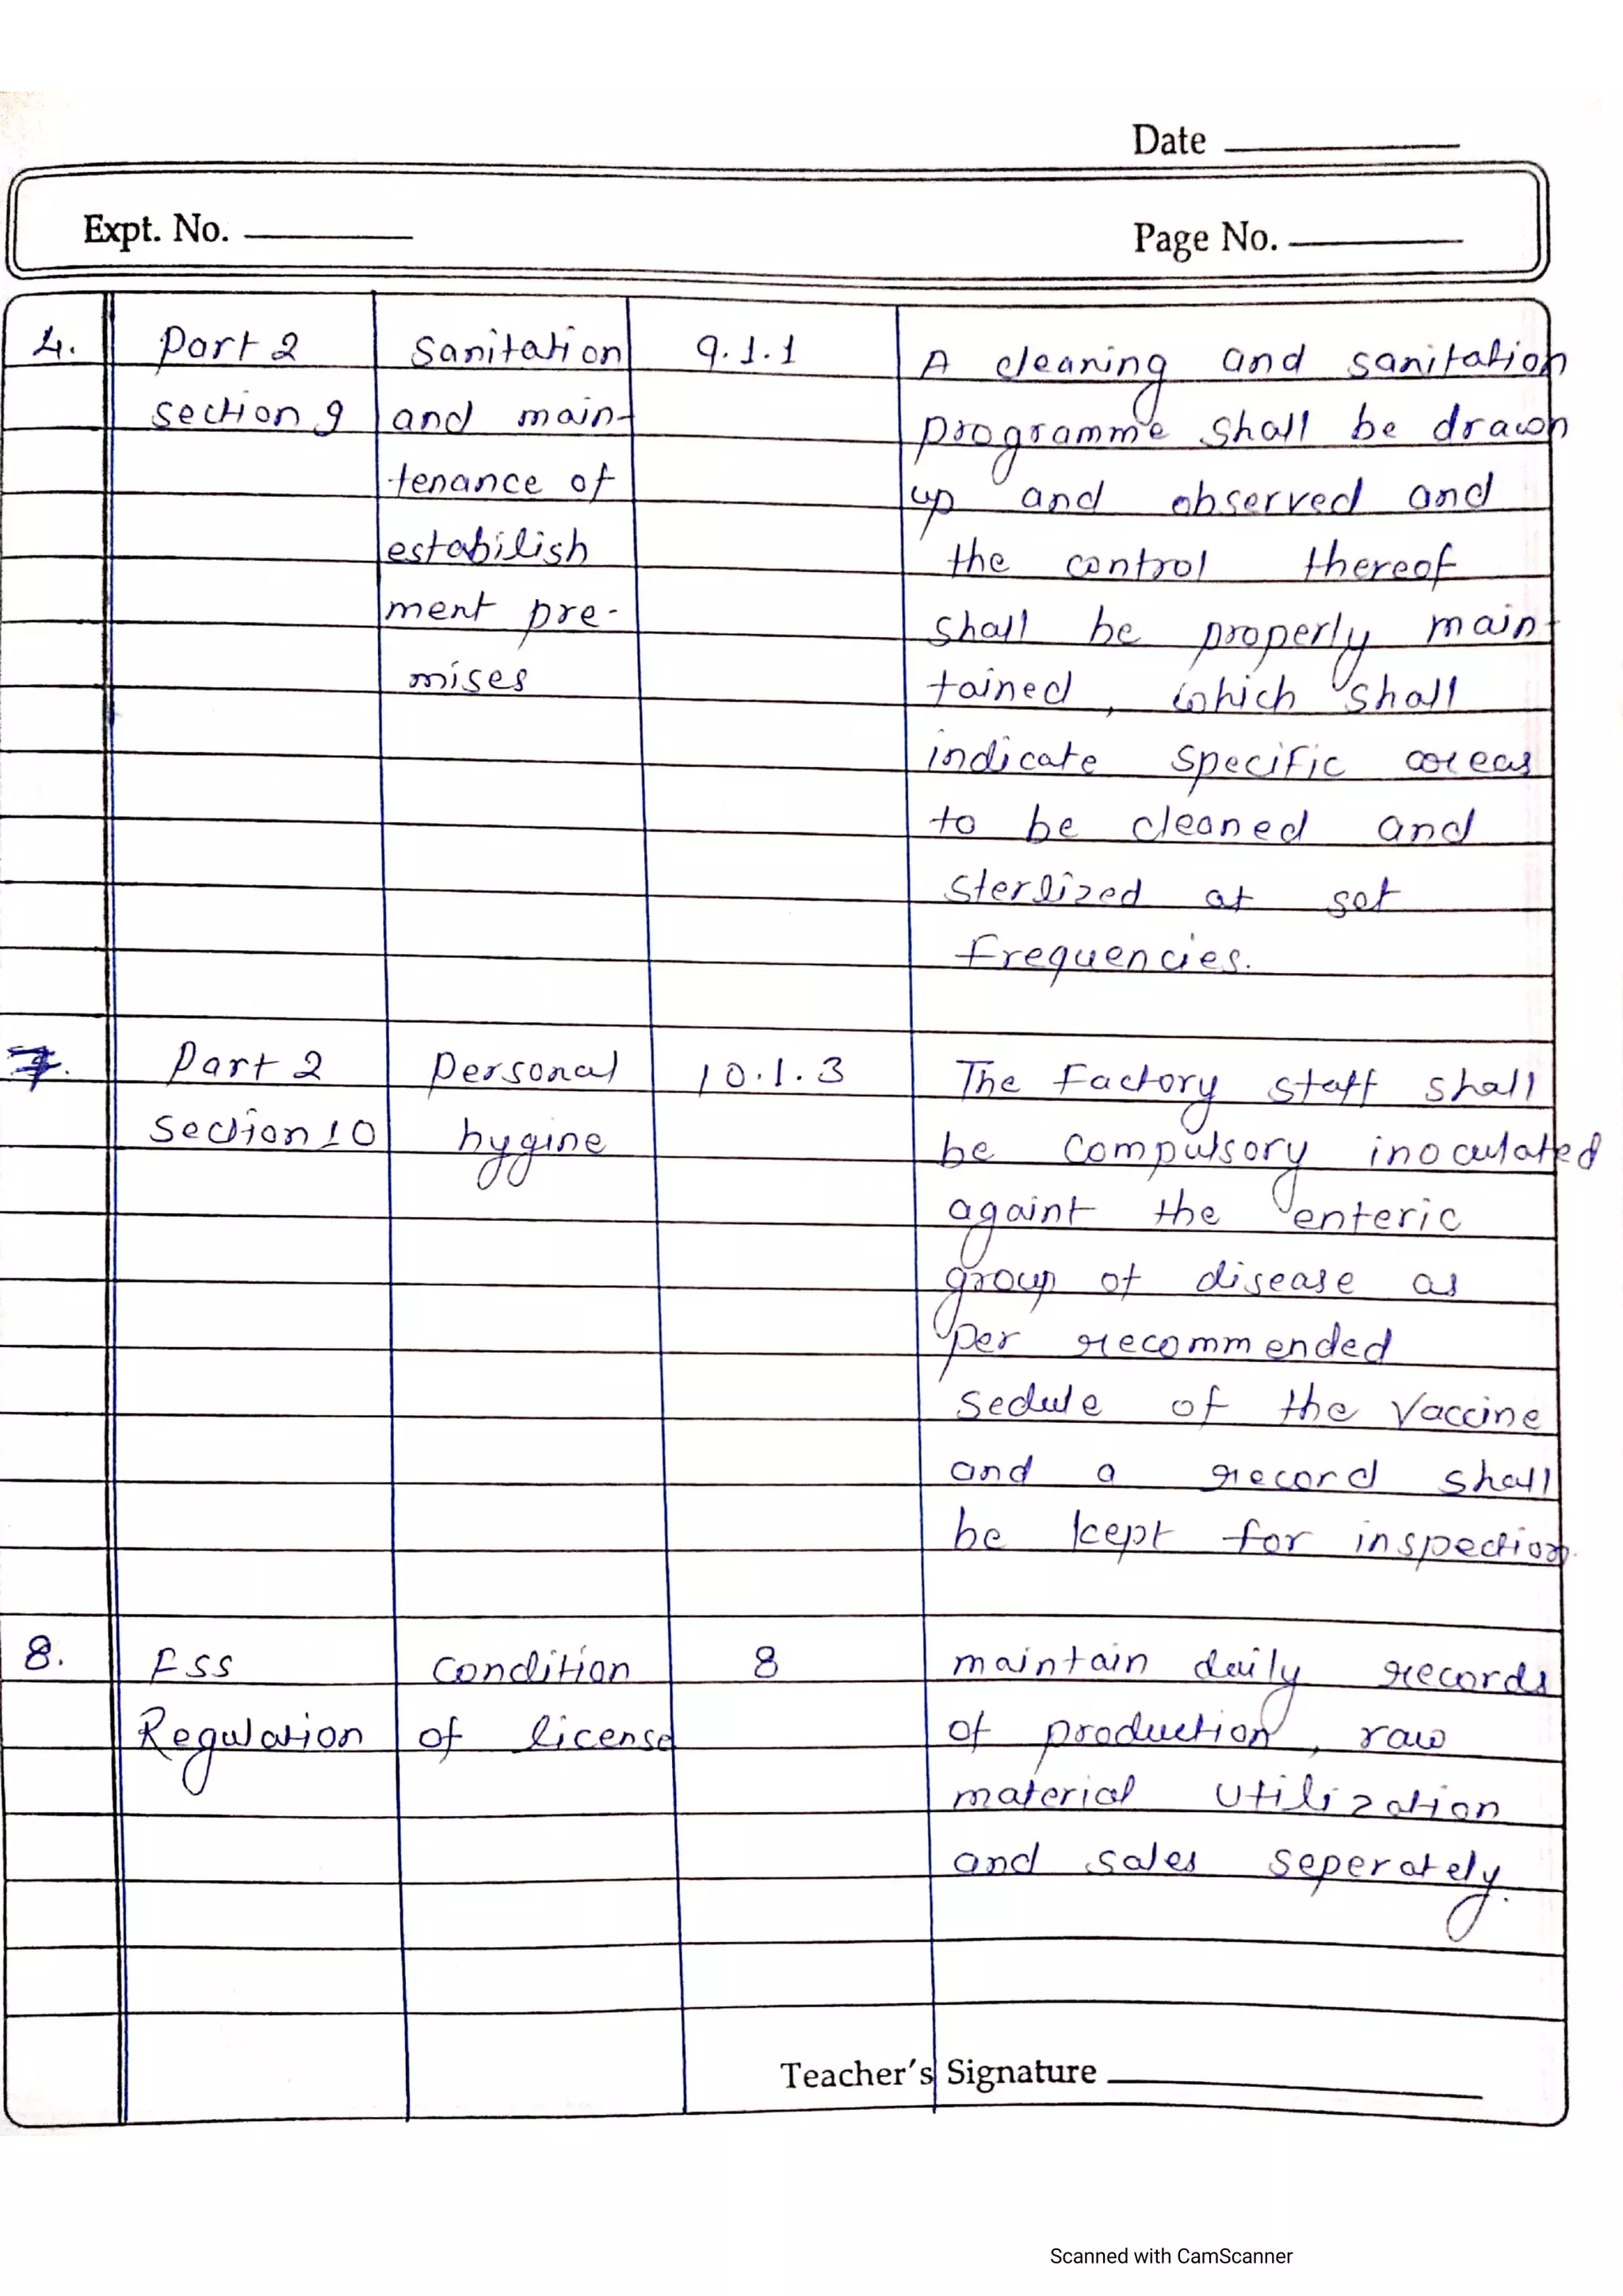 Date
Expt. No.
Page No.
4. Part 2 Sanitation 9.1.1 A cleaning and sanitation
section 9 and main- programme shall be drawn
tenance of up and observed and
estabilish the control thereof
ment pre- shall be properly main-
mises tained, which shall
indicate specific areas
to be cleaned and
sterlized at set
frequencies.
7. Part 2 Personal 10.1.3 The Factory staff shall
Section 10 hygine be compulsory inoculated
againt the enteric
group of disease as
per recommended
sedule of the vaccine
and a record shall
be kept for inspection.
8. FSS Condition 8 maintain daily records
Regulation of license of production, raw
material utilization
and sales seperately.
Teacher's Signature
Scanned with CamScanner